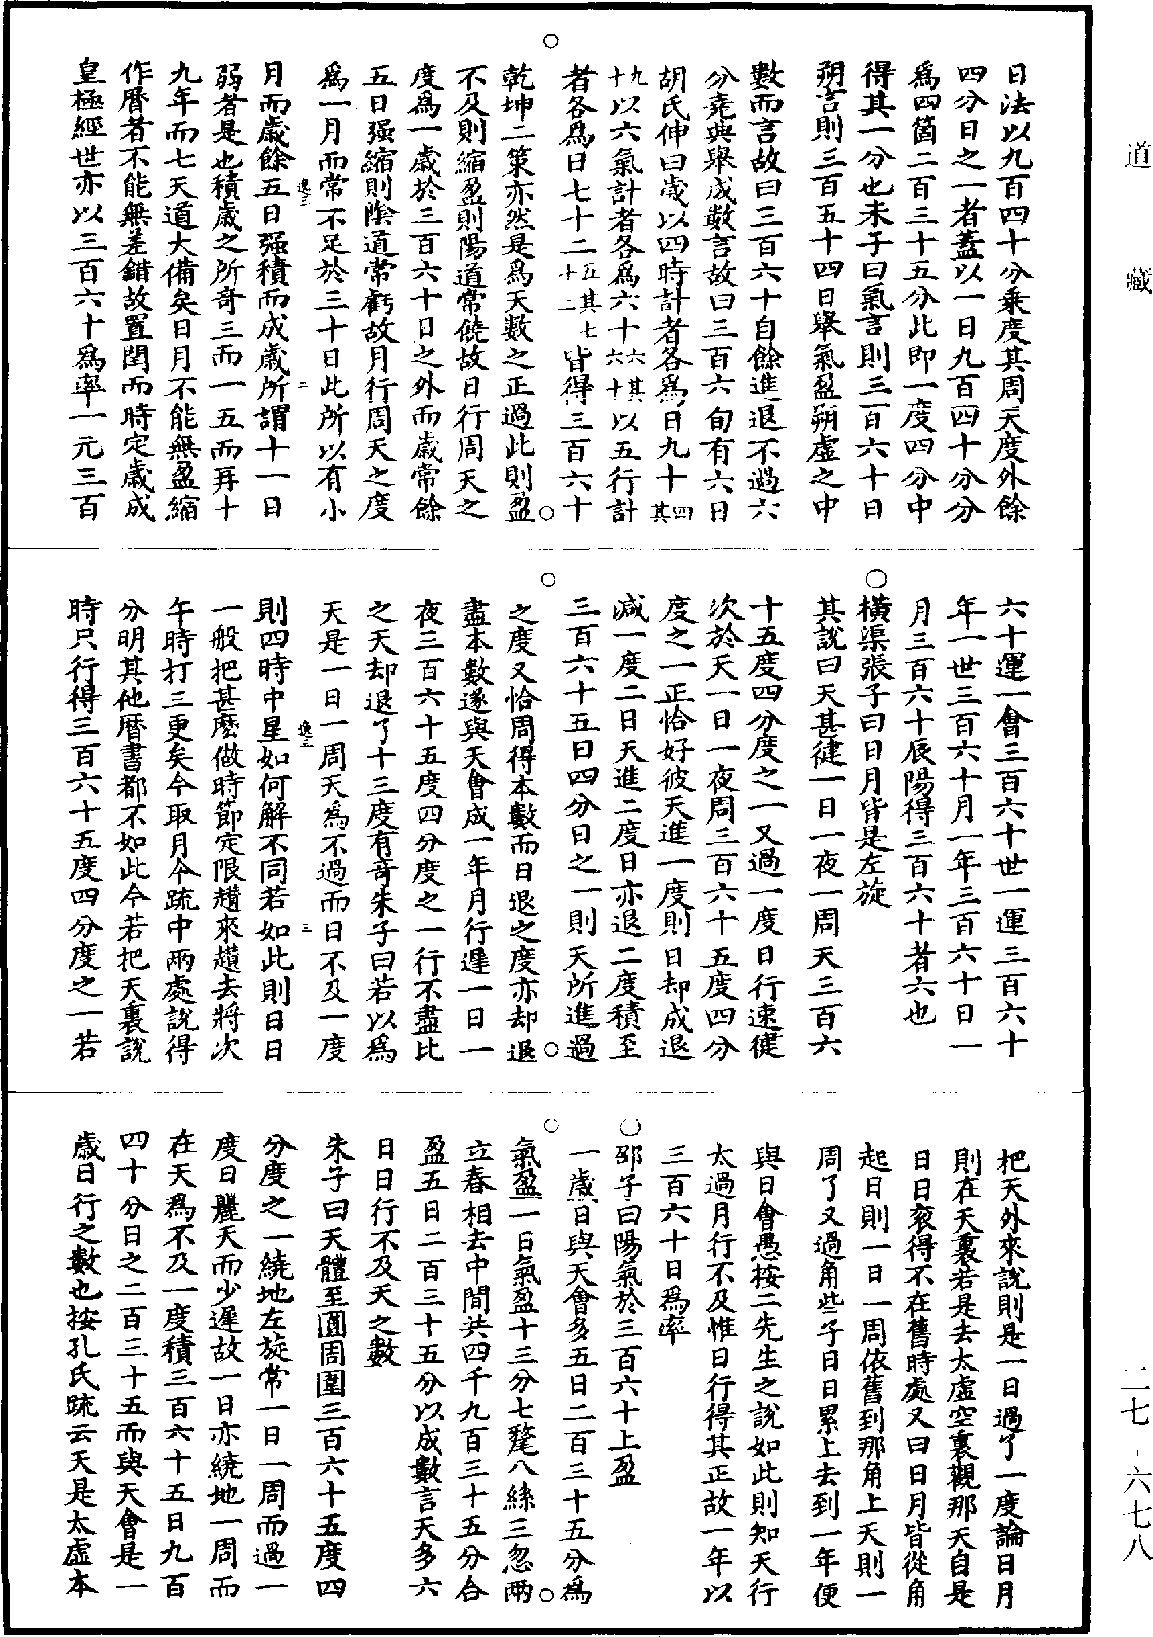 道藏
日法以九百四十分乘度其周天度外餘
四分日之一者蓋以一日九百四十分分
爲四箇二百三十五分此即一度四分中
得其一分也朱子曰氣言則三百六十日
朔言則三百五十四日舉氣盈朔虛之中
數而言故曰三百六十自餘進退不過六
分堯典舉成數言故曰三百六旬有六日
胡氏伸曰歲以四時計者各爲日九十其四
十九以六氣計者各爲六十六其六十以五行計
者各爲日七十二五其七十二皆得三百六十
乾坤二策亦然是爲天數之正過此則盈
不及則縮盈則陽道常饒故日行周天之
度爲一歲於三百六十日之外而歲常餘
五日强縮則陰道常虧故月行周天之度
爲一月而常不足於三十日此所以有小
月而歲餘五日强積而成歲所謂十一日
弱者是也積歲之所奇三而一五而再十
九年而七天道大備矣日月不能無盈縮
作曆者不能無差錯故置閏而時定歲成
皇極經世亦以三百六十爲率一元三百
六十運一會三百六十世一運三百六十
年一世三百六十月一年三百六十日一
月三百六十辰陽得三百六十者六也
○橫渠張子曰日月皆是左旋
其說曰天甚徤一日一夜一周天三百六
十五度四分度之一又過一度日行速徤
次於天一日一夜周三百六十五度四分
度之一正恰好彼天進一度則日却成退
減一度二日天進二度日亦退二度積至
三百六十五日四分日之一則天所進過
之度又恰周得本數而日退之度亦却退
盡本數遂與天會成一年月行遲一日一
夜三百六十五度四分度之一行不盡比
之天却退了十三度有奇朱子曰若以爲
天是一日一周天爲不過而日不及一度
則四時中星如何解不同若如此則日日
一般把甚麽做時節定限趲來趲去將次
午時打三更矣今取月令疏中兩處說得
分明其他曆書都不如此今若把天裏說
時只行得三百六十五度四分度之一若
把天外來說則是一日過了一度論日月
則在天裏若是去太虛空裏觀那天自是
日日衮得不在舊時處又曰日月皆從角
起日則一日一周依舊到那角上天則一
周了又過角些子日日累上去到一年便
與日會愚按二先生之說如此則知天行
太過月行不及惟日行得其正故一年以
三百六十日爲率
○邵子曰陽氣於三百六十上盈
一歲日與天會多五日二百三十五分爲
氣盈一日氣盈十三分七氂八絲三忽兩
立春相去中間共四千九百三十五分合
盈五日二百三十五分以成數言天多六
日日行不及天之數
朱子曰天體至圓周圍三百六十五度四
分度之一繞地左旋常一日一周而過一
度日麗天而少遲故一日亦繞地一周而
在天爲不及一度積三百六十五日九百
四十分日之二百三十五而與天會是一
歲日行之數也按孔氏疏云天是太虛本
二七-六七八